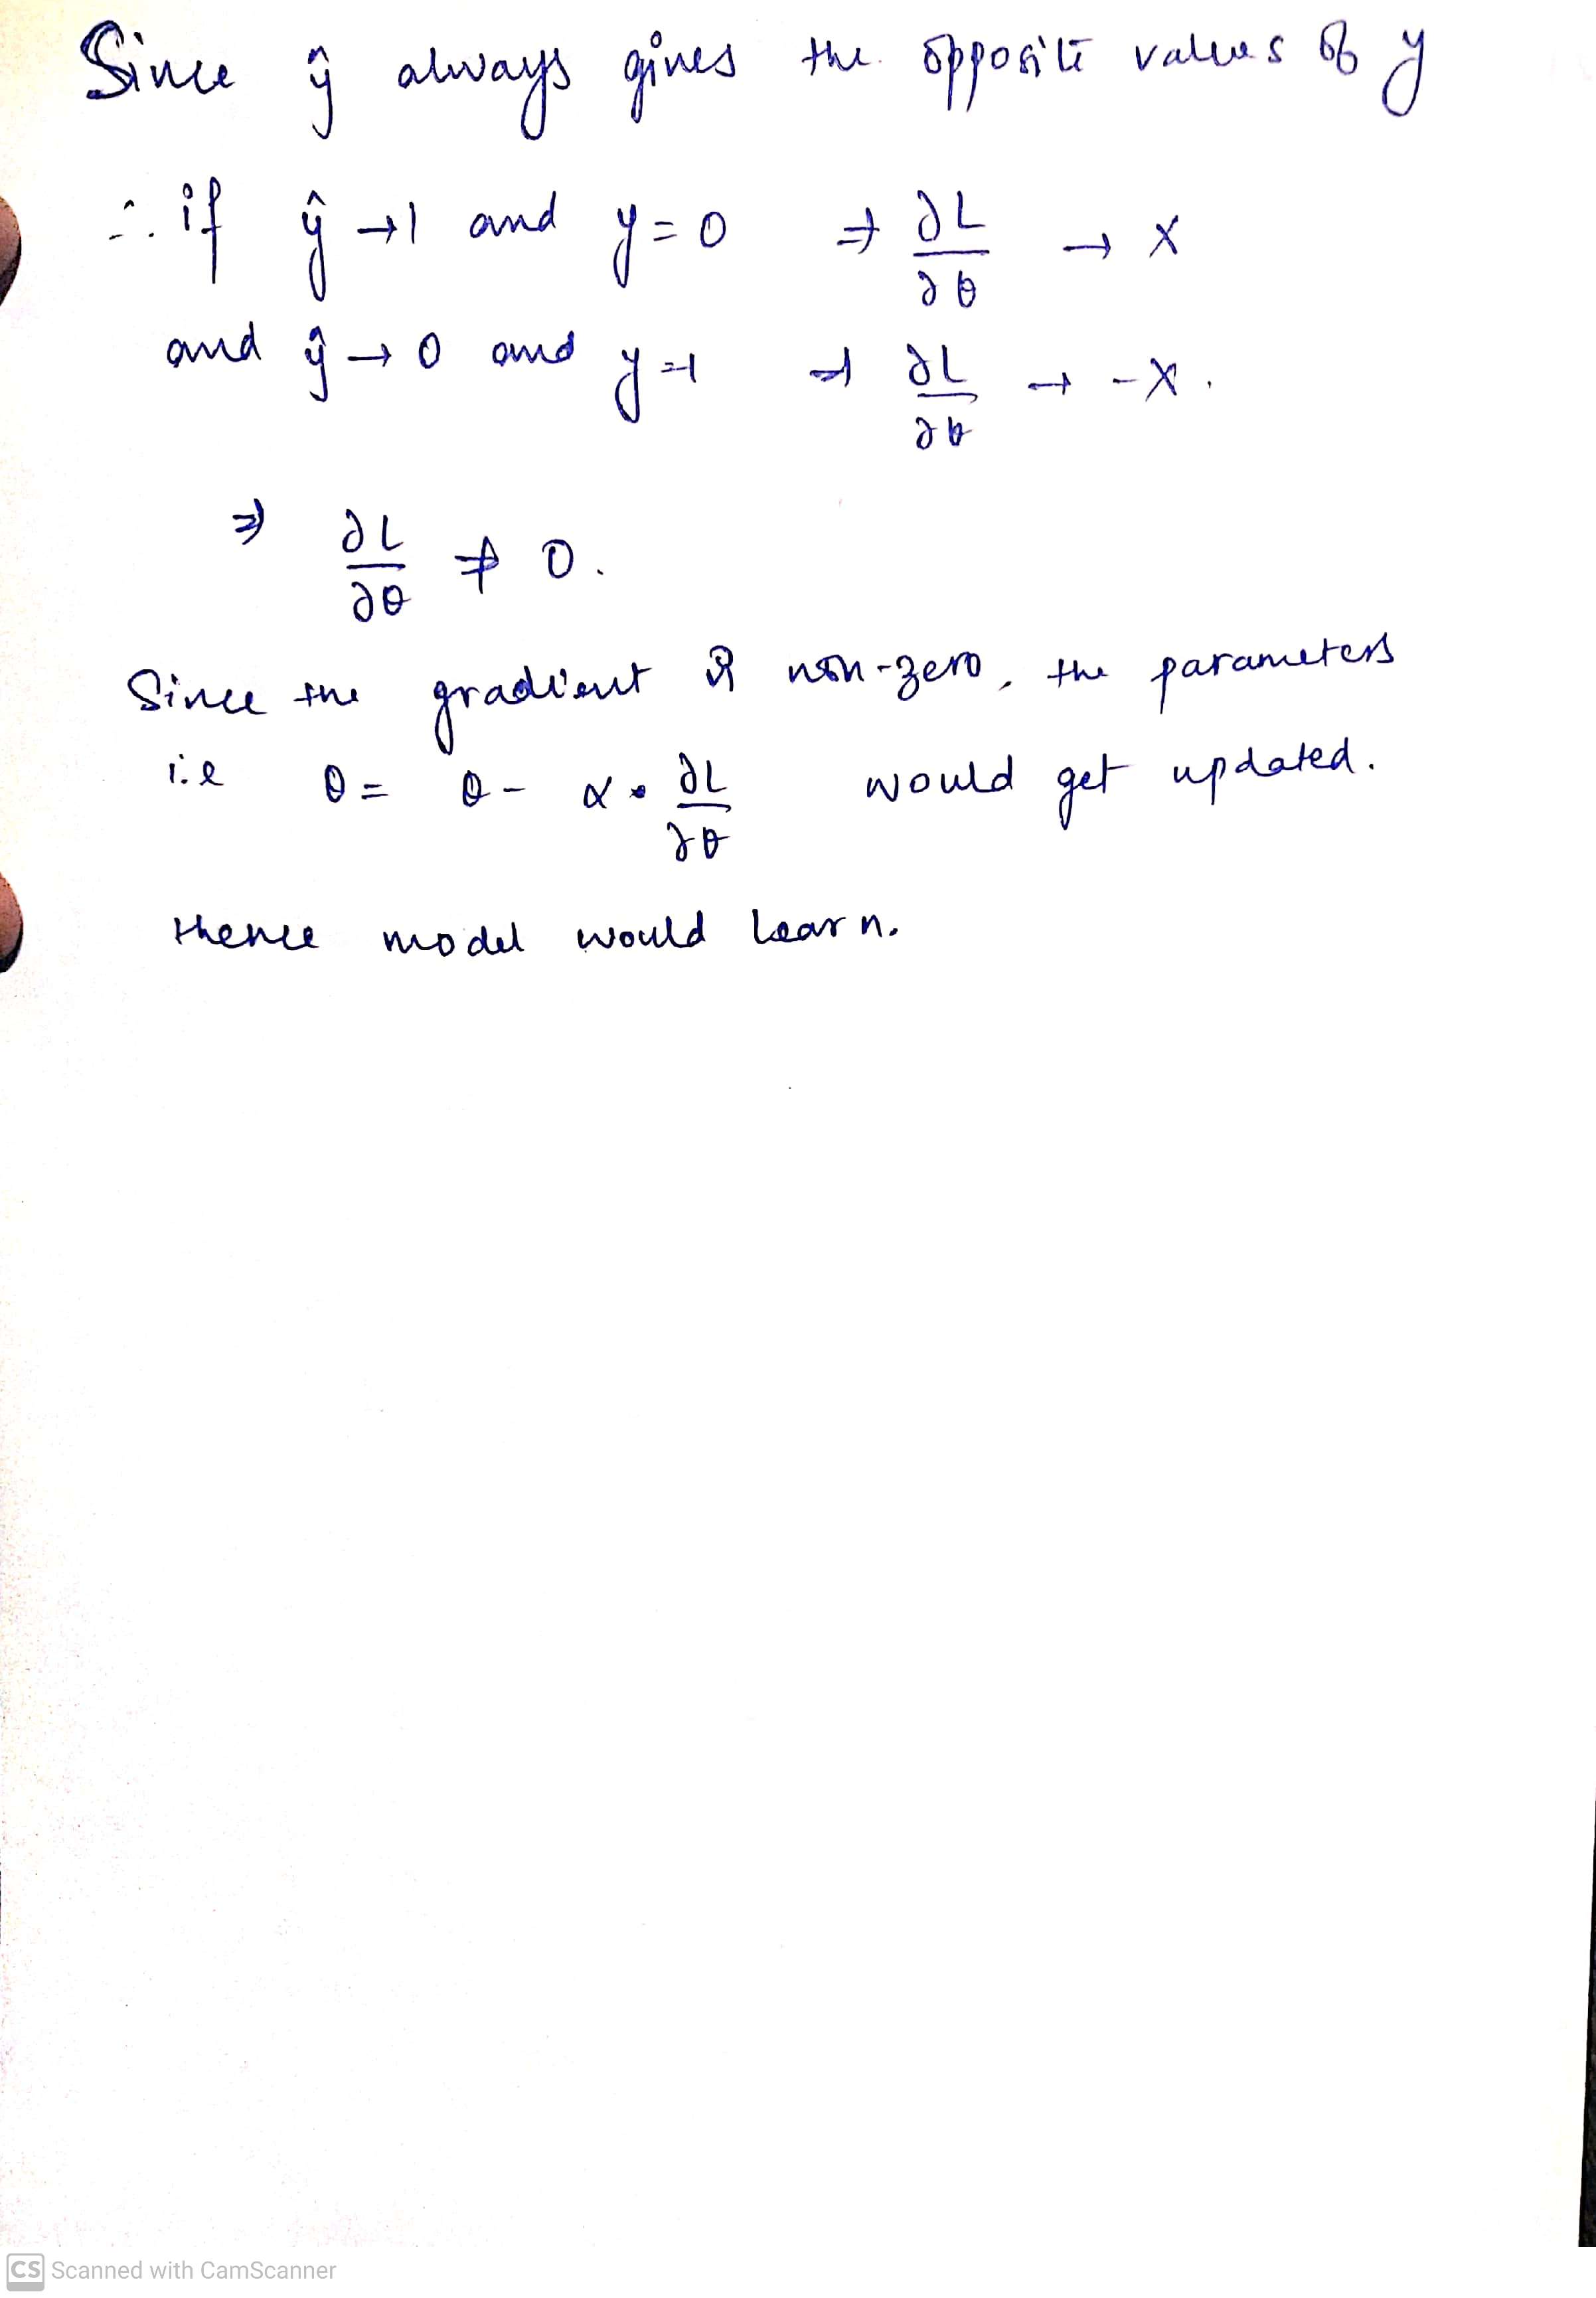 Since ŷ always gives the opposite values of y
∴ if ŷ → 1 and y = 0 ⇒ ∂L/∂θ → X
and ŷ → 0 and y = 1 ⇒ ∂L/∂θ → -X.
⇒ ∂L/∂θ ≠ 0.
Since the gradient is non-zero, the parameters
i.e θ = θ - α • ∂L/∂θ would get updated.
Hence model would learn.
CS Scanned with CamScanner